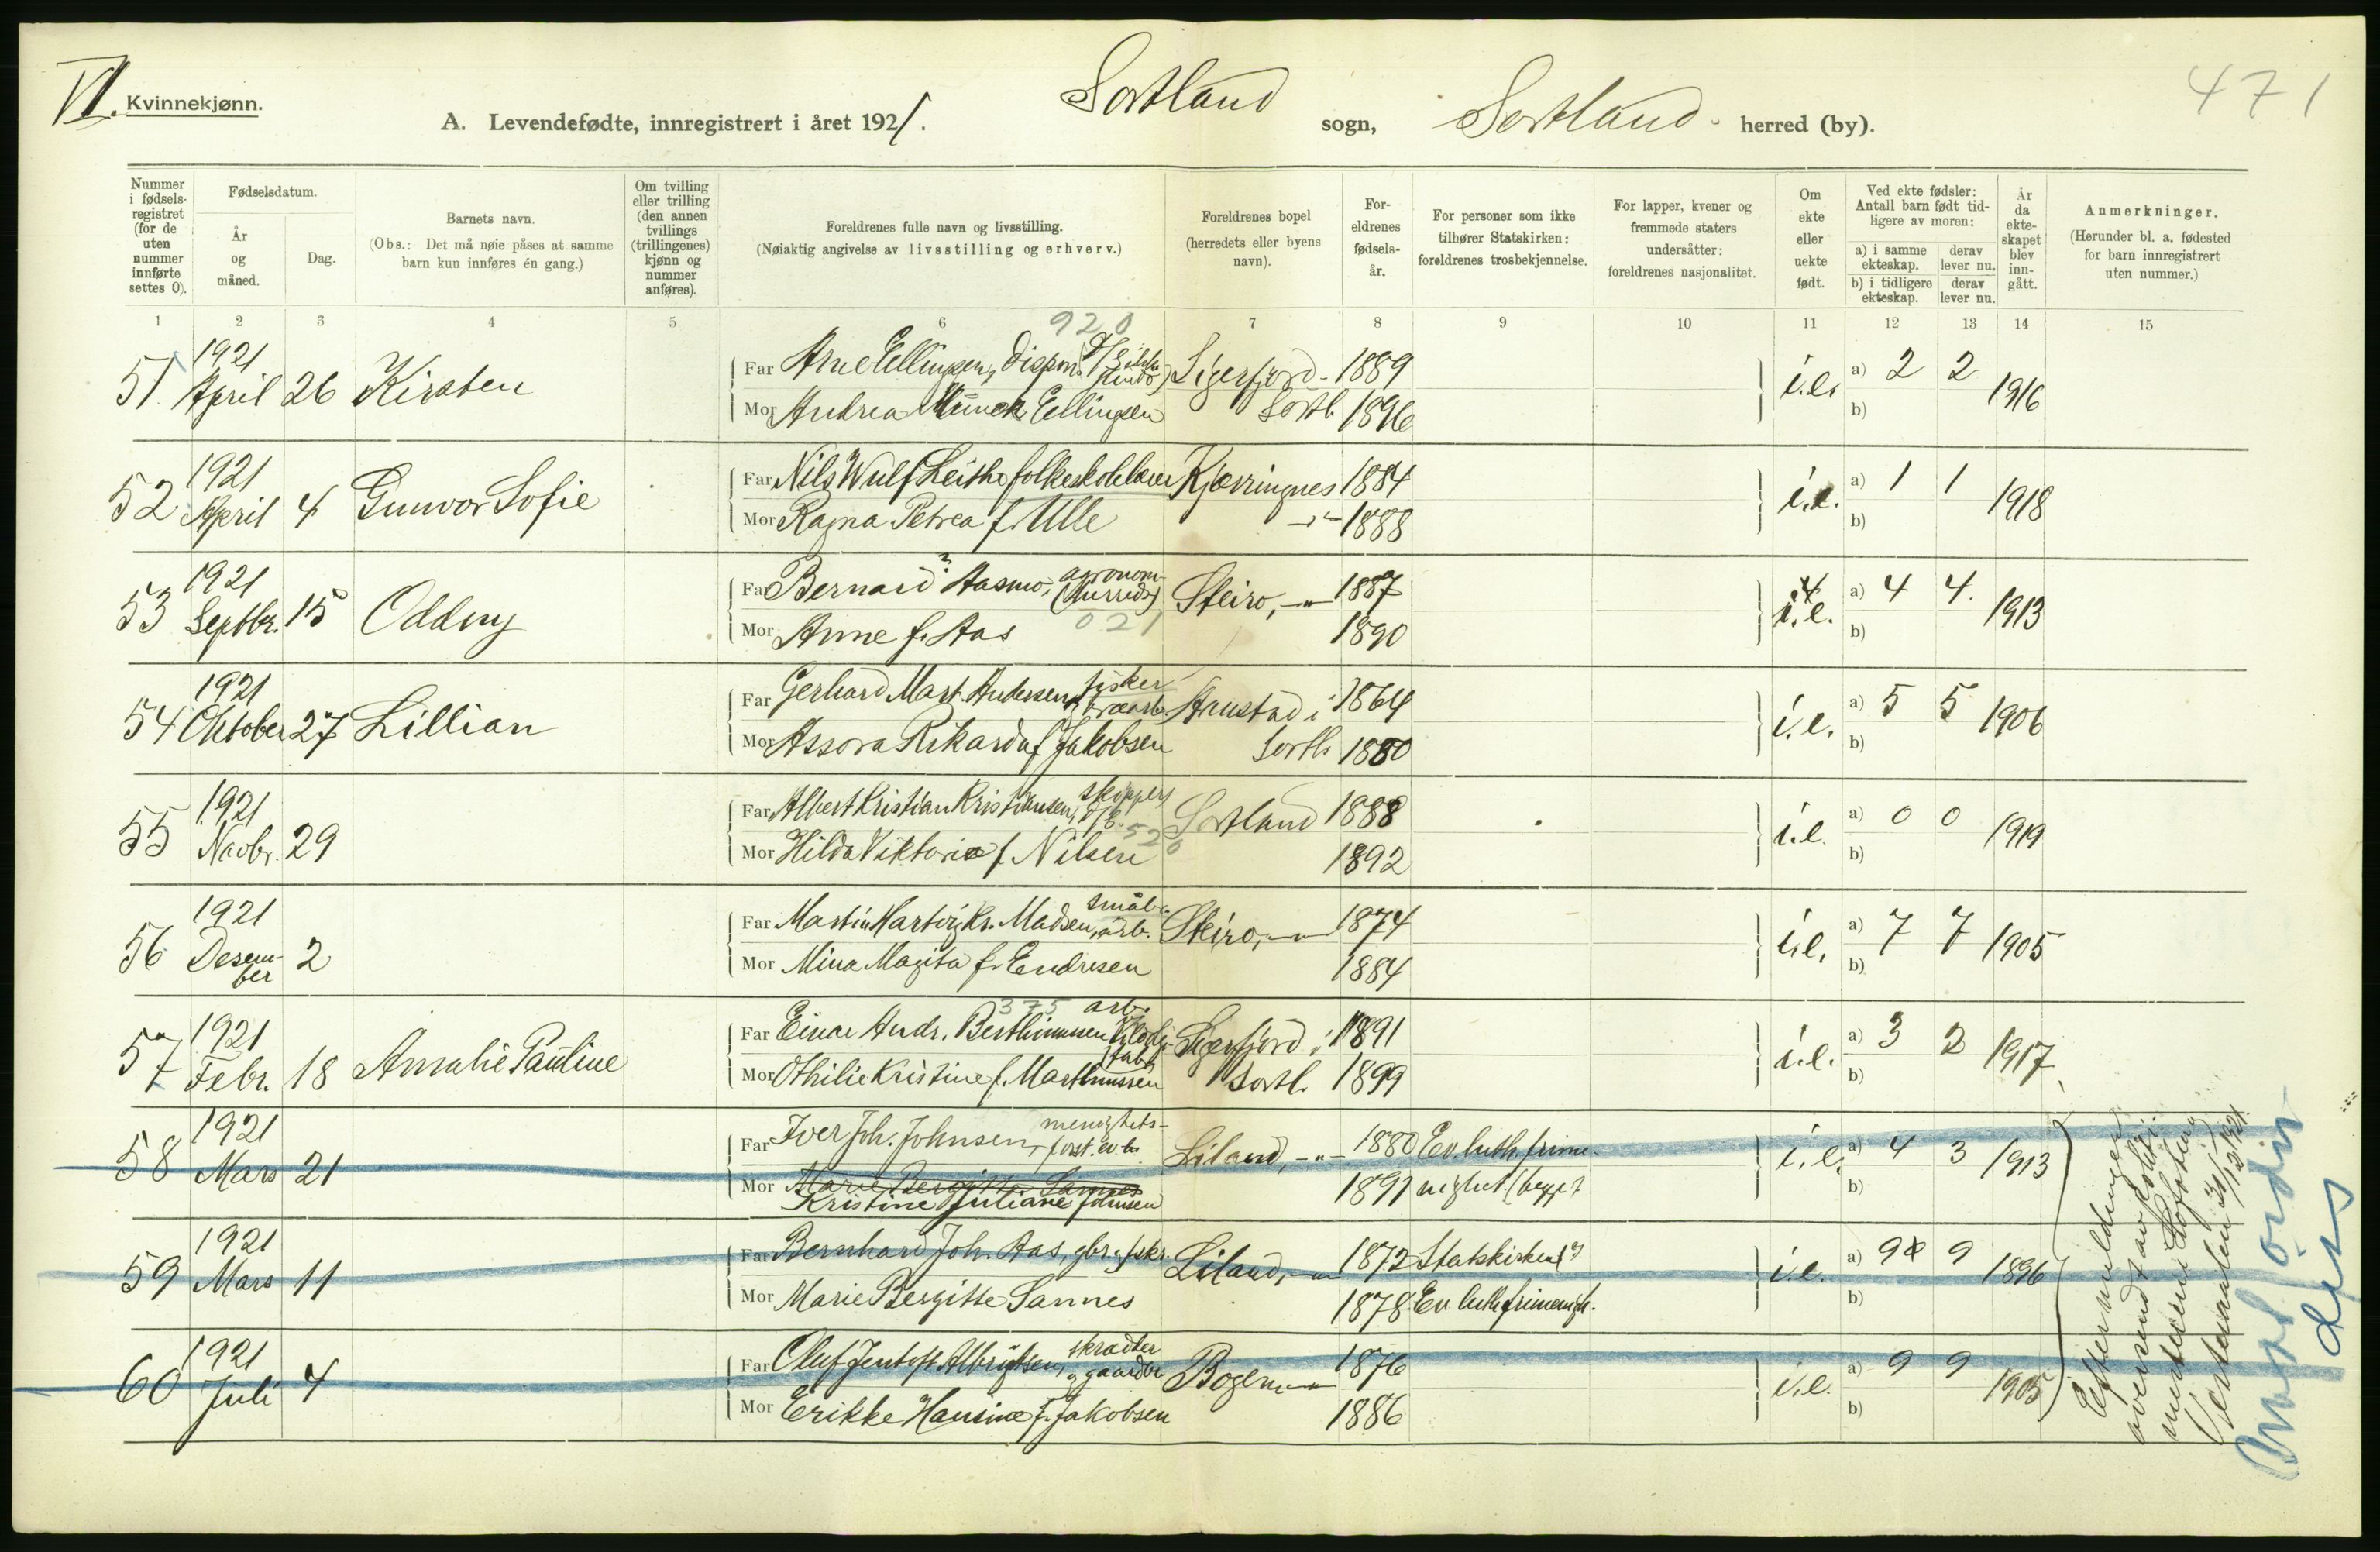 VI. Kvinnekjønn.
471
A. Levendefødte, innregistrert i året 1921. Sortland sogn, Sortland herred (by).
Nummer i fødsels-registret (for de uten nummer innførte settes 0).
Fødselsdatum.
År og måned.
Dag.
Barnets navn.
(Obs.: Det må nøie påses at samme barn kun innføres én gang.)
Om tvilling eller trilling (den annen tvillings (trillingenes) kjønn og nummer anføres).
Foreldrenes fulle navn og livsstilling.
(Nøiaktig angivelse av livsstilling og erhverv.)
Foreldrenes bopel (herredets eller byens navn).
For-eldrenes fødsels-år.
For personer som ikke tilhører Statskirken: foreldrenes trosbekjennelse.
For lapper, kvener og fremmede staters undersåtter: foreldrenes nasjonalitet.
Om ekte eller uekte født.
Ved ekte fødsler: Antall barn født tid-ligere av moren:
a) i samme ekteskap. derav lever nu.
b) i tidligere ekteskap. derav lever nu.
År da ekte-skapet blev inn-gått.
Anmerkninger.
(Herunder bl. a. fødested for barn innregistrert uten nummer.)
1 2 3 4 5 6 7 8 9 10 11 12 13 14 15
920
51 1921 April 26 Kirsten
Far Arne Ellingsen, dispon. Sigerfjord 1889 i.e. a) 2 2 1916
Mor Andrea Munck Ellingsen Sortl. 1896 b)
52 1921 April 4 Gunvor Sofie
Far Nils Wulf Leithe folkeskolelærer Kjerringnes 1884 i.e. a) 1 1 1918
Mor Ragna Petrea f. Ulle -"- 1888 b)
53 1921 Septbr. 15 Oddny
Far Bernard Aasmo, agronom Steiro, -"- 1887 i.e. a) 4 4. 1913
Mor Anne f. Aas 021 1890 b)
54 1921 Oktober 27 Lillian
Far Gerhard Mart. Andersen, fisker Aanstad i 1864 i.e. a) 5 5 1906
Mor Assora Rikarda f. Jakobsen Sortl. 1880 b)
55 1921 Novbr. 29
Far Albert Kristian Kristiansen, skipper Sortland 1888 i.e. a) 0 0 1919
Mor Hilda Viktoria f. Nilsen 520 1892 b)
56 1921 Desember 2
Far Martin Hartvig Kr. Madsen, småbr. arb. Steiro, -"- 1874 i.e. a) 7 7 1905
Mor Mina Magita f. Endresen 1884 b)
57 1921 Febr. 18 Amalie Pauline
375 arb.
Far Einar Andr. Berthinussen Sigerfjord i 1891 i.e. a) 3 2 1917
Mor Othilie Kristine f. Marthinussen Sortl. 1899 b)
58 1921 Mars 21
Far Iver Joh. Johnsen, menighets-forst. Liland, -"- 1880 Ev. luth. frime- i.e. a) 4 3 1913
Mor Marie Bergitte Sannes
Kristine Juliane Johnsen 1891 nighet (begge) b)
59 1921 Mars 11
Far Bernhard Joh. Aas, gbr. fskr. Liland, -"- 1872 Statskirken i.e. a) 9 9 1896
Mor Marie Bergitte Sannes 1878 Ev. luth. frimenigh. b)
60 1921 Juli 4
Far Oluf Jentoft Albrigtsen, skrædder gaardbr. Bogen -"- 1876 i.e. a) 9 9 1905
Mor Erikke Hansine f. Jakobsen 1886 b)
Eftermeldinger
oversendt av politi-
mesteren i Lofoten og
Vesteraalen 31/12 1921.